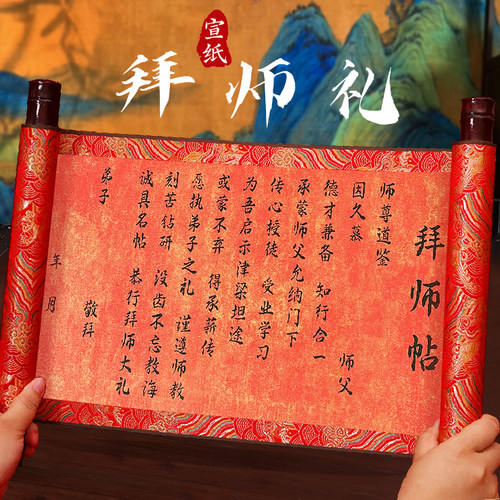 宣纸
拜师礼
拜师帖
师尊道鉴
因久慕 师父
德才兼备 知行合一
承蒙师父允纳门下
传心授徒 受业学习
为吾启示津梁坦途
或蒙不弃 得承薪传
愿执弟子之礼 谨遵师教
刻苦钻研 没齿不忘教诲
诚具名帖 恭行拜师大礼
弟子 敬拜
年 月